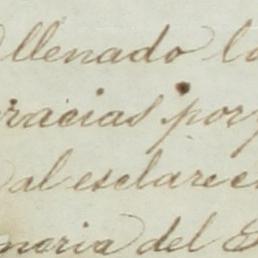 llenado la
gracias por
al esclarec
moria del